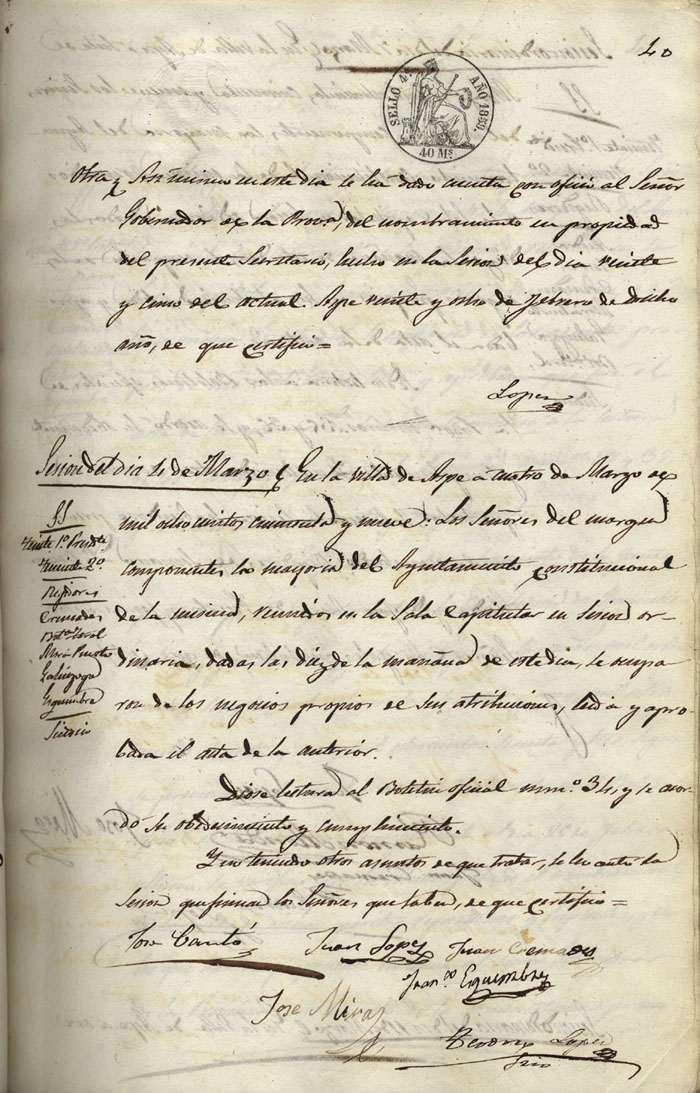 40
SELLO 4º AÑO 1859.
40 Ms
Otra y Asimismo en este dia se ha dado cuenta con oficio al Señor
Gobernador de la Prova, del nombramiento en propiedad
del presente Secretario, hecho en la Sesion del dia veinte
y cinco del actual. Aspe veinte y ocho de Febrero de dicho
año, de que certifico=
Lopez
Sesion del dia 4 de Marzo
En la villa de Aspe a cuatro de Marzo de
mil ochocientos cincuenta y nueve: Los Señores del margen
componentes la mayoria del Ayuntamiento constitucional
de la misma, reunidos en la Sala Capitular en Sesion or-
dinaria, dadas las diez de la mañana de este dia, se ocupa
ron de los negocios propios de sus atribuciones, leida y apro-
bada el acta de la anterior.
SS
Teniente 1º Presdte
Teniente 2º
Rejidores
Cremades
Galinzoga
Esquembre
Sindico
Diose lectura al Boletin oficial num.º 34, y se acor
dó su obedecimiento y cumplimiento.
Y no teniendo otros asuntos de que tratar, se levantó la
Sesion que firman los Señores que saben, de que certifico=
Jose Cantó
Juan Lopez
Juan Cremades
Franco Esquembre
Jose Mira
Lopez
Srio